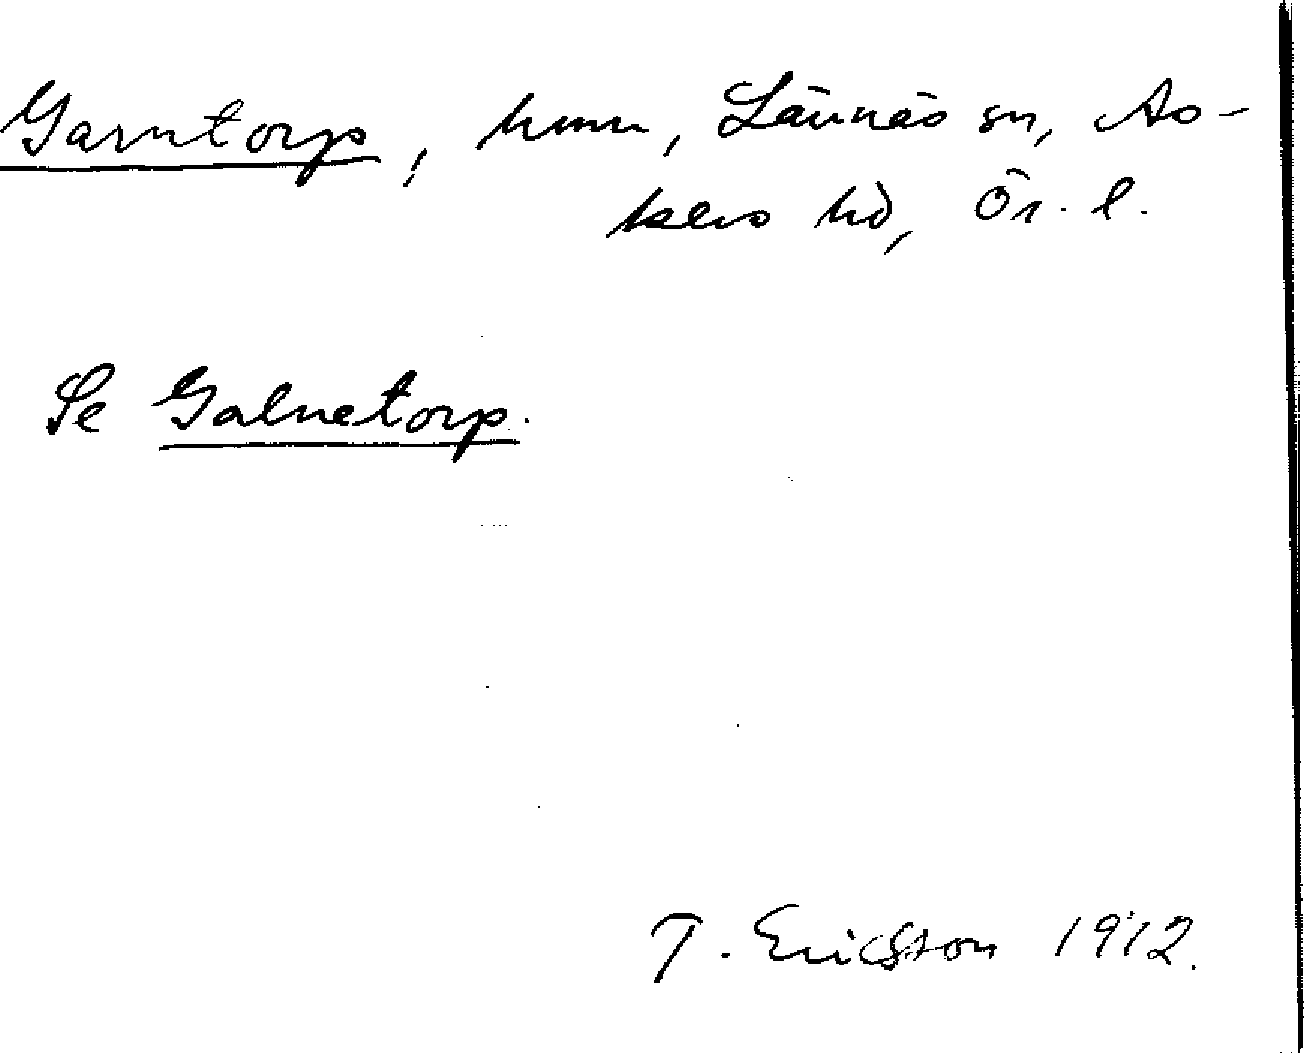 Garntorp, hmn, Lännäs sn, As-
kers hd, Ör. l.
Se Galnetorp.
T. Ericsson 1912.